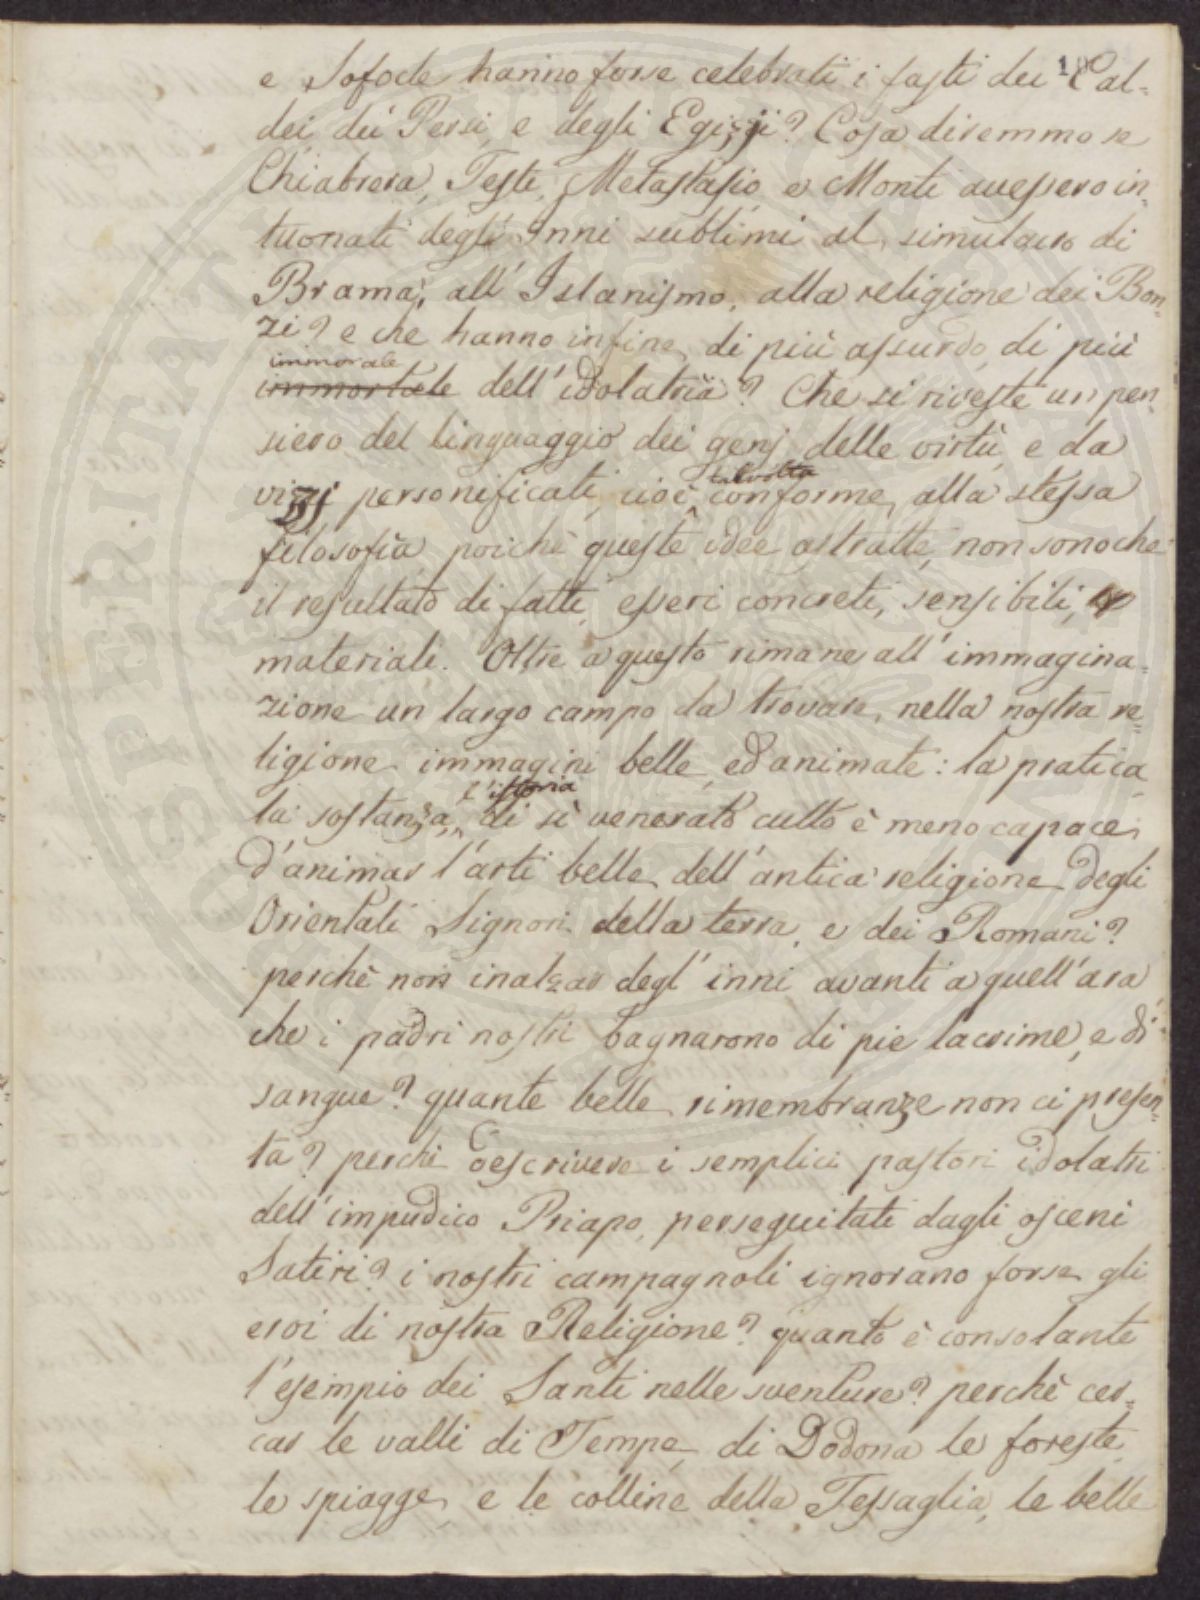 18
e Sofocle hanno forse celebrati i fasti dei Cal-
dei, dei Persi, e degli Egizzj? Cosa diremmo se
Chiabrera, Testi, Metastasio, e Monti avessero in-
tuonati degl' Inni sublimi al simulacro di
Brama, all' Islanismo, alla religione dei Bon-
zi? e che hanno infine di più assurdo, di più
immorale
immortale dell' idolatria? Che si riveste un pen-
siero del linguaggio dei genj delle virtù, e da
talvolta
vizzj personificati, ciò è conforme, alla stessa
filosofia, poichè queste idee astratte, non sono che
il resultato di fatti, esseri concreti, sensibili,
materiali. Oltre a questo rimane all' immagina-
zione un largo campo da trovare, nella nostra re-
ligione immagini belle, ed animate: la pratica,
l'istoria
la sostanza, di sì venerato culto è meno capace
d'animar l'arti belle dell' antica religione degli
Orientali Signori della terra, e dei Romani?
perchè non inalzar degl' inni avanti a quell' ara
che i padri nostri bagnarono di pie lacrime, e di
sangue? quante belle rimembranze non ci presen-
ta? perchè descrivere i semplici pastori idolatri
dell' impudico Priapo, perseguitati dagli osceni
Satiri? i nostri campagnoli ignorano forse gli
eroi di nostra Religione? quanto è consolante
l'esempio dei Santi nelle sventure? perchè cer-
car le valli di Tempe, di Dodona le foreste,
le spiagge, e le colline della Tessaglia, le belle